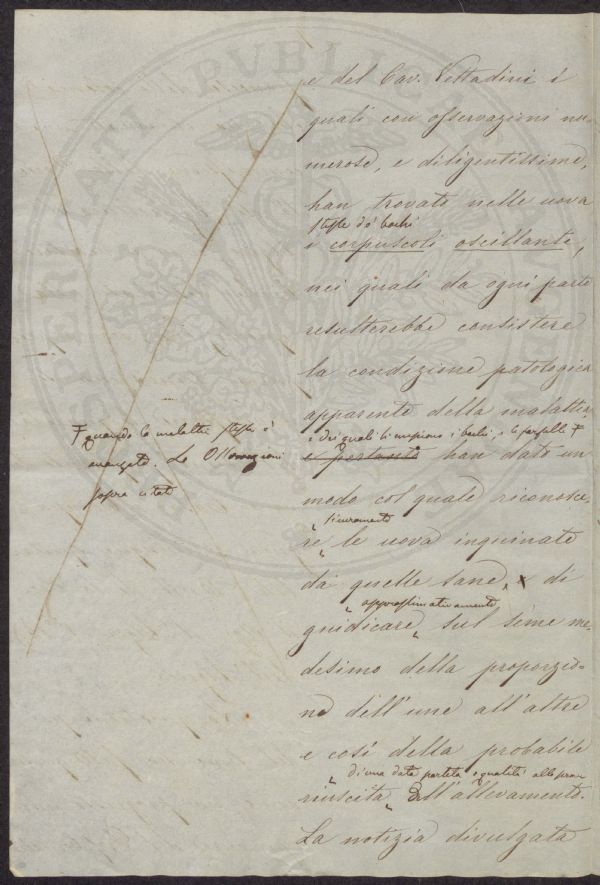 e del Cav. Vittadini i
quali con osservazioni nu-
merose, e diligentissime,
han trovato nelle uova
stesse de' bachi
i corpuscoli oscillanti,
nei quali da ogni parte
resulterebbe consistere
la condizione patologica
apparente della malattia
e dei quali si empiono i bachi, e le farfalle Ŧ
e pertanto han dato un
Ŧ quando la malattia stessa è
avanzata. Le Osservazioni
sopra citate
modo col quale riconosce-
sicuramente
re le uova inquinate
da quelle sane, x di
approssimativamente
giudicare sul seme me-
desimo della proporzio-
ne dell'une all'altre
e così della probabile
di una data partita e qualità alla prova
riuscita dell'allevamento.
La notizia divulgata